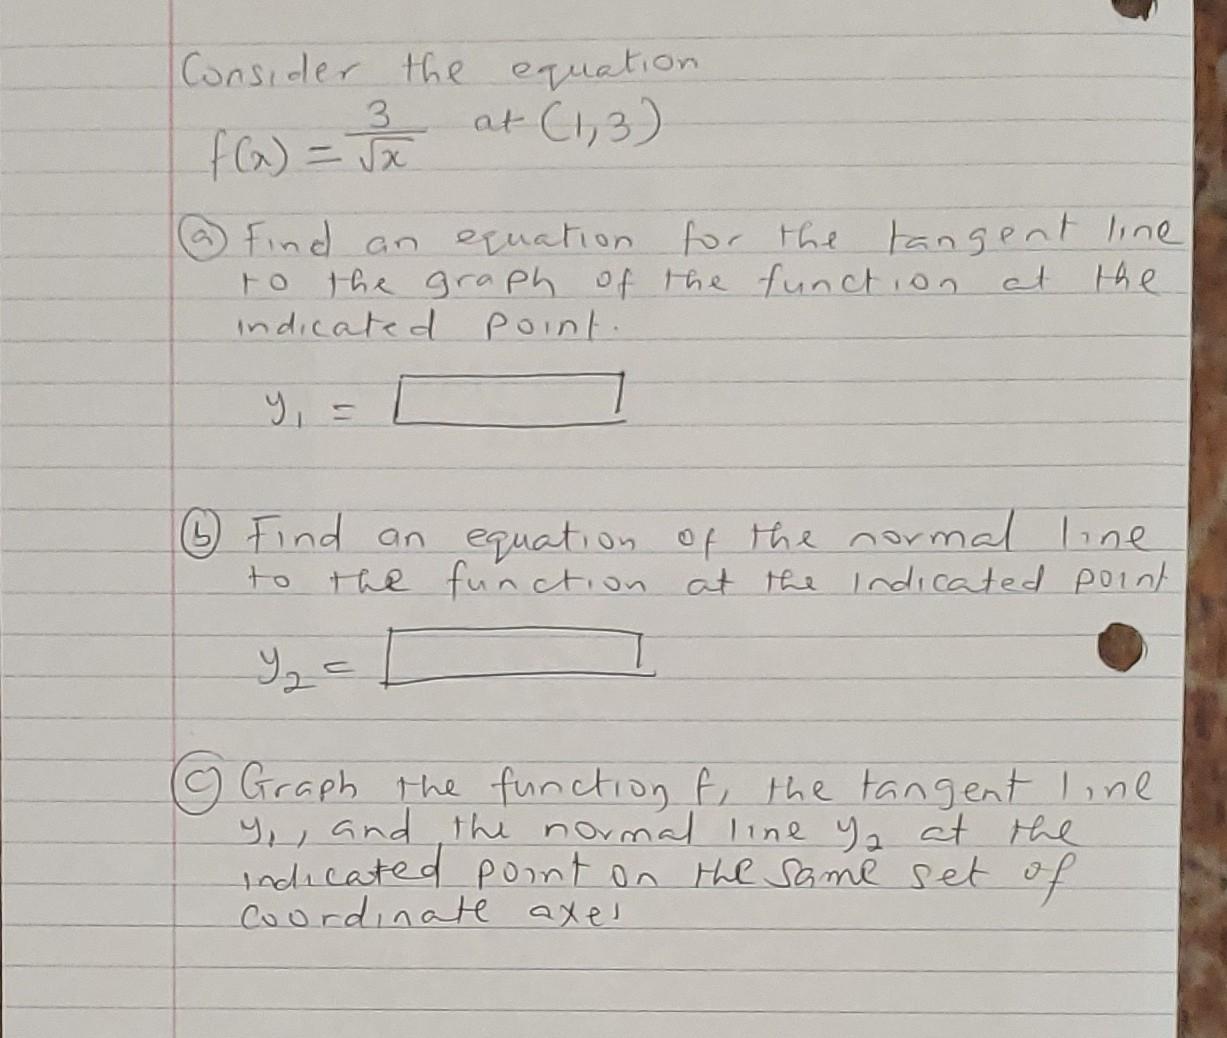 Consider the equation
f(x) = 3/√x at (1,3)
ⓐ Find an equation for the tangent line
to the graph of the function at the
indicated point.
y₁ =
ⓑ Find an equation of the normal line
to the function at the indicated point
y₂ =
ⓒ Graph the function f, the tangent line
y₁, and the normal line y₂ at the
indicated point on the same set of
coordinate axes